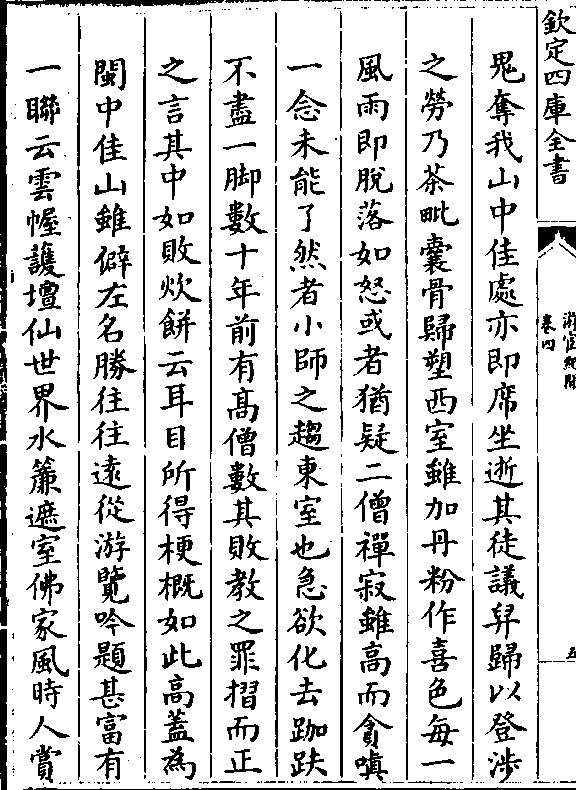 欽定四庫全書
游宦紀聞
卷四
五
鬼奪我山中佳處亦即席坐逝其徒議舁歸以登涉
之勞乃茶毗囊骨歸塑西室雖加丹粉作喜色每一
風雨即脫落如怒或者猶疑二僧禪寂雖高而貪嗔
一念未能了然者小師之趨東室也急欲化去跏趺
不盡一脚數十年前有髙僧數其敗教之罪摺而正
之言其中如敗炊餅云耳目所得梗概如此高蓋為
閩中佳山雖僻左名勝往往遠從游覽吟題甚富有
一聯云雲幄護壇仙世界水簾遮室佛家風時人賞